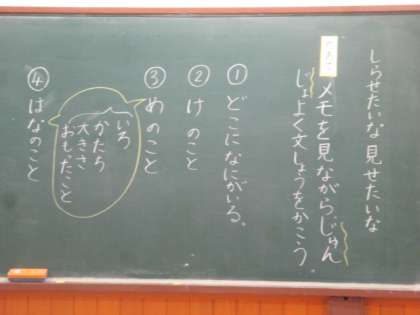 しらせたいな 見せたいな
めあて
メモを見ながらじゅん
じょよく文しょうをかこう。
① どこになにがいる。
② け のこと
③ め のこと
いろ
かたち
大きさ
おもったこと
④ はなのこと